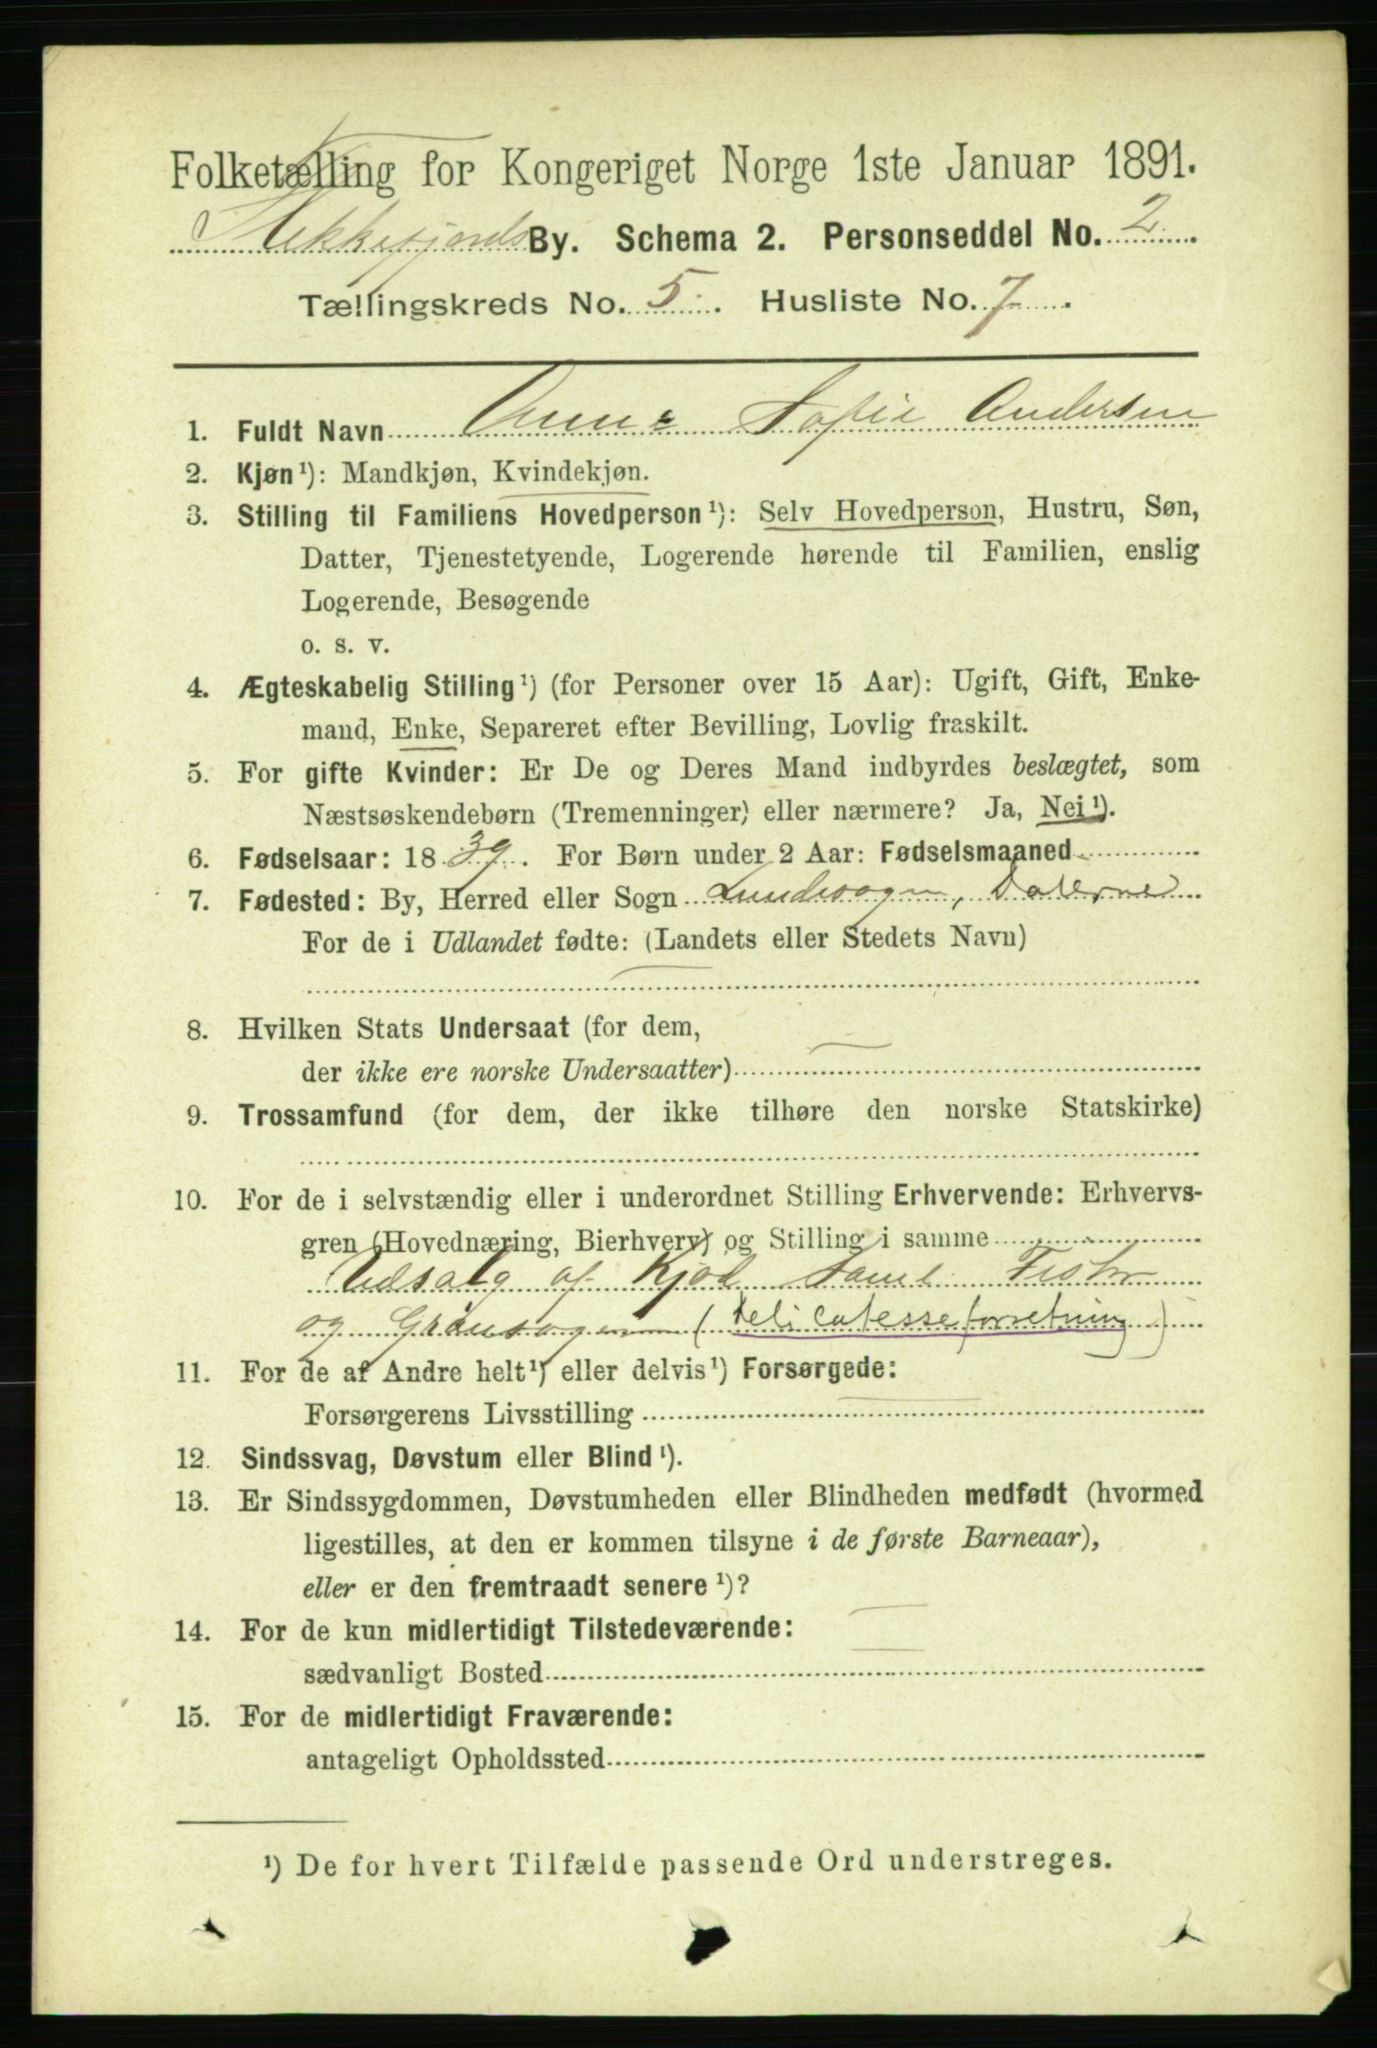 Folketælling for Kongeriget Norge 1ste Januar 1891.
Flekkefjords By. Schema 2. Personseddel No. 2
Tællingskreds No. 5. Husliste No. 7.
1. Fuldt Navn Anne Sofie Andersen
2. Kjøn¹): Mandkjøn, Kvindekjøn.
3. Stilling til Familiens Hovedperson¹): Selv Hovedperson, Hustru, Søn,
Datter, Tjenestetyende, Logerende hørende til Familien, enslig
Logerende, Besøgende
o. s. v.
4. Ægteskabelig Stilling¹) (for Personer over 15 Aar): Ugift, Gift, Enke-
mand, Enke, Separeret efter Bevilling, Lovlig fraskilt.
5. For gifte Kvinder: Er De og Deres Mand indbyrdes beslægtet, som
Næstsøskendebørn (Tremenninger) eller nærmere? Ja, Nei¹).
6. Fødselsaar: 1839. For Børn under 2 Aar: Fødselsmaaned
7. Fødested: By, Herred eller Sogn Lundesogn, Dalerne
For de i Udlandet fødte: (Landets eller Stedets Navn)
8. Hvilken Stats Undersaat (for dem,
der ikke ere norske Undersaatter)
9. Trossamfund (for dem, der ikke tilhøre den norske Statskirke)
10. For de i selvstændig eller i underordnet Stilling Erhvervende: Erhvervs-
gren (Hovednæring, Bierhverv) og Stilling i samme
Udsalg af Kjød samt
og Grønsager (Delicatesseforretning)
11. For de af Andre helt¹) eller delvis¹) Forsørgede:
Forsørgerens Livsstilling
12. Sindssvag, Døvstum eller Blind¹).
13. Er Sindssygdommen, Døvstumheden eller Blindheden medfødt (hvormed
ligestilles, at den er kommen tilsyne i de første Barneaar),
eller er den fremtraadt senere¹)?
14. For de kun midlertidigt Tilstedeværende:
sædvanligt Bosted
15. For de midlertidigt Fraværende:
antageligt Opholdssted
¹) De for hvert Tilfælde passende Ord understreges.